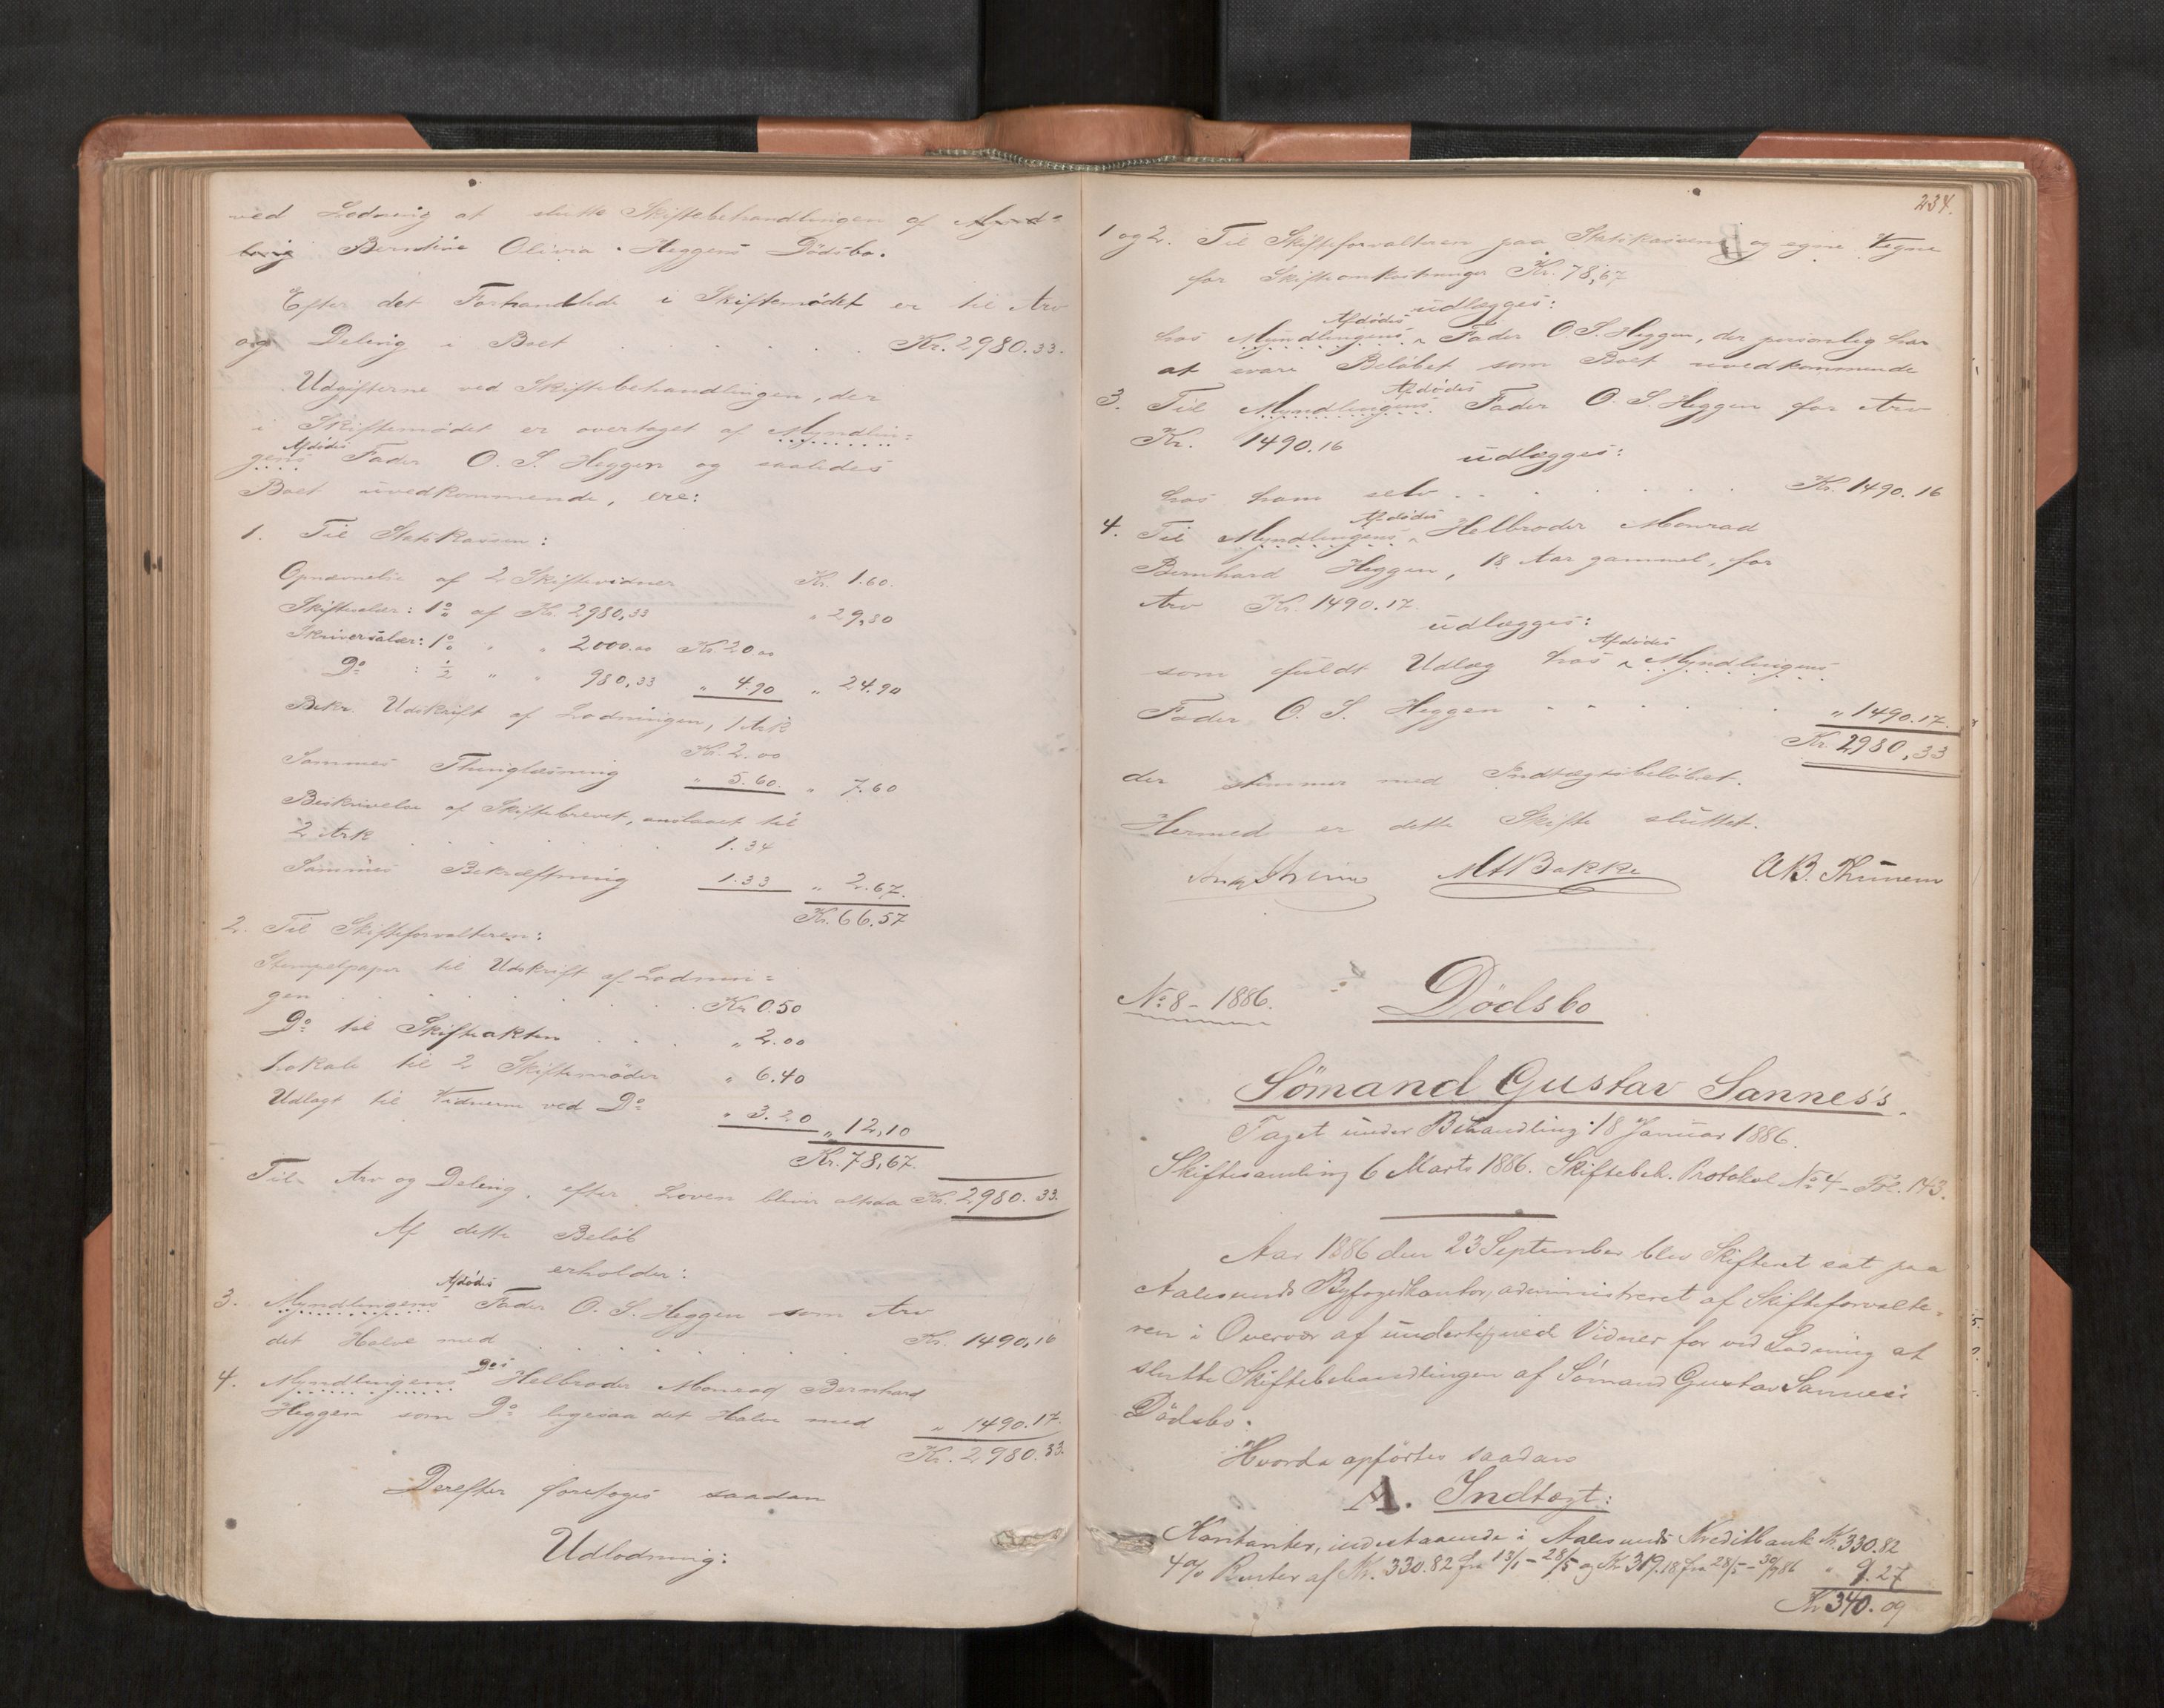 ved Lodning at slutte Skiftebehandlingen af Mynd-
ling Berndine Olivia Heggens Dödsbo.
Efter det Forhandlede i Skiftemödet er til Arv
og Deling i Boet . . . . . . Kr. 2980.33.
Udgifterne ved Skiftebehandlingen, der
i Skiftemödet er overtaget af Myndlin-
gens Afdödes Fader O. S. Heggen og saaledes
Boet uvedkommende, ere:
1. Til Statskassen:
Opnævnelse af 2 Skiftevidner Kr. 1.60.
Skiftesalær: 1% af Kr. 2980,33 " 29,80
Skriversalær: 1% " " 2000.00 Kr. 20.00
Do : ½ " " 980,33 " 4.90 " 24.90
Bekr. Udskrift af Lodningen, 1 Ark
Kr. 2.00
Sammes Thinglæsning " 5.60. " 7.60
Beskrivelse af Skiftebrevet, anslaaet til
2 Ark . . . . . . 1.34
Sammes Bekræftning 1.33 " 2.67.
Kr. 66.57
2. Til Skifteforvalteren:
Stempelpapir til Udskrift af Lodnin-
gen . . . . . . Kr 0.50
Do til Skifteakten . . . " 2.00
Lokale til 2 Skiftemöder " 6.40
Udlagt til Vidnerne ved Do " 3.20 " 12,10
Kr. 78,67.
Til Arv og Deling efter Loven bliver altsaa Kr. 2980.33.
Af dette Belöb
erholder:
3. Myndlingens Afdödes Fader O. S. Heggen som Arv
det Halve med . . . . . . Kr. 1490,16
4. Myndlingens Do's Helbroder Monrad Bernhard
Heggen som Do ligesaa det Halve med " 1490.17.
Kr. 2980.33.
Derefter foretoges saadan
Udlodning:
234.
1 og 2. Til Skifteforvalteren paa Statskassens og egne Vegne
for Skifteomkostninger Kr. 78,67
udlægges:
hos Myndlingens Afdödes Fader O. S. Heggen, der personlig har
at svare Belöbet som Boet uvedkommende
3. Til Myndlingens Afdödes Fader O. S. Heggen for Arv
Kr. 1490.16
udlægges:
hos ham selv . . . . . . Kr. 1490.16
4. Til Myndlingens Afdödes Helbroder Monrad
Bernhard Heggen, 18 Aar gammel, for
Arv Kr. 1490.17.
udlægges:
som fuldt Udlæg hos Afdödes Myndlingens
Fader O. S. Heggen . . . . . " 1490.17.
Kr. 2980,33
der stemmer med Indtægtsbelöbet.
Hermed er dette Skifte sluttet.
M A Bakke A B. Thunem
No 8 - 1886.
Dödsbo
Sömand Gustav Sannes's.
Taget under Behandling 18 Januar 1886.
Skiftesamling 6 Marts 1886. Skiftebeh. Protokol No 4 - Fol. 143.
Aar 1886 den 23 September blev Skifteret sat paa
Aalesunds Byfogedkontor, administreret af Skifteforvalte-
ren i Overvær af undertegnede Vidner for ved Lodning at
slutte Skiftebehandlingen af Sömand Gustav Sannes's
Dödsbo.
Hvorda opförtes saadan
A. Indtægt:
Kontanter, indestaaende i Aalesunds Kreditbank Kr. 330.82
4% Renter af Kr. 330.82 fra 13/1 - 28/5 og Kr 319.18 fra 28/5 - 30/9 86 " 9.27
Kr 340.09